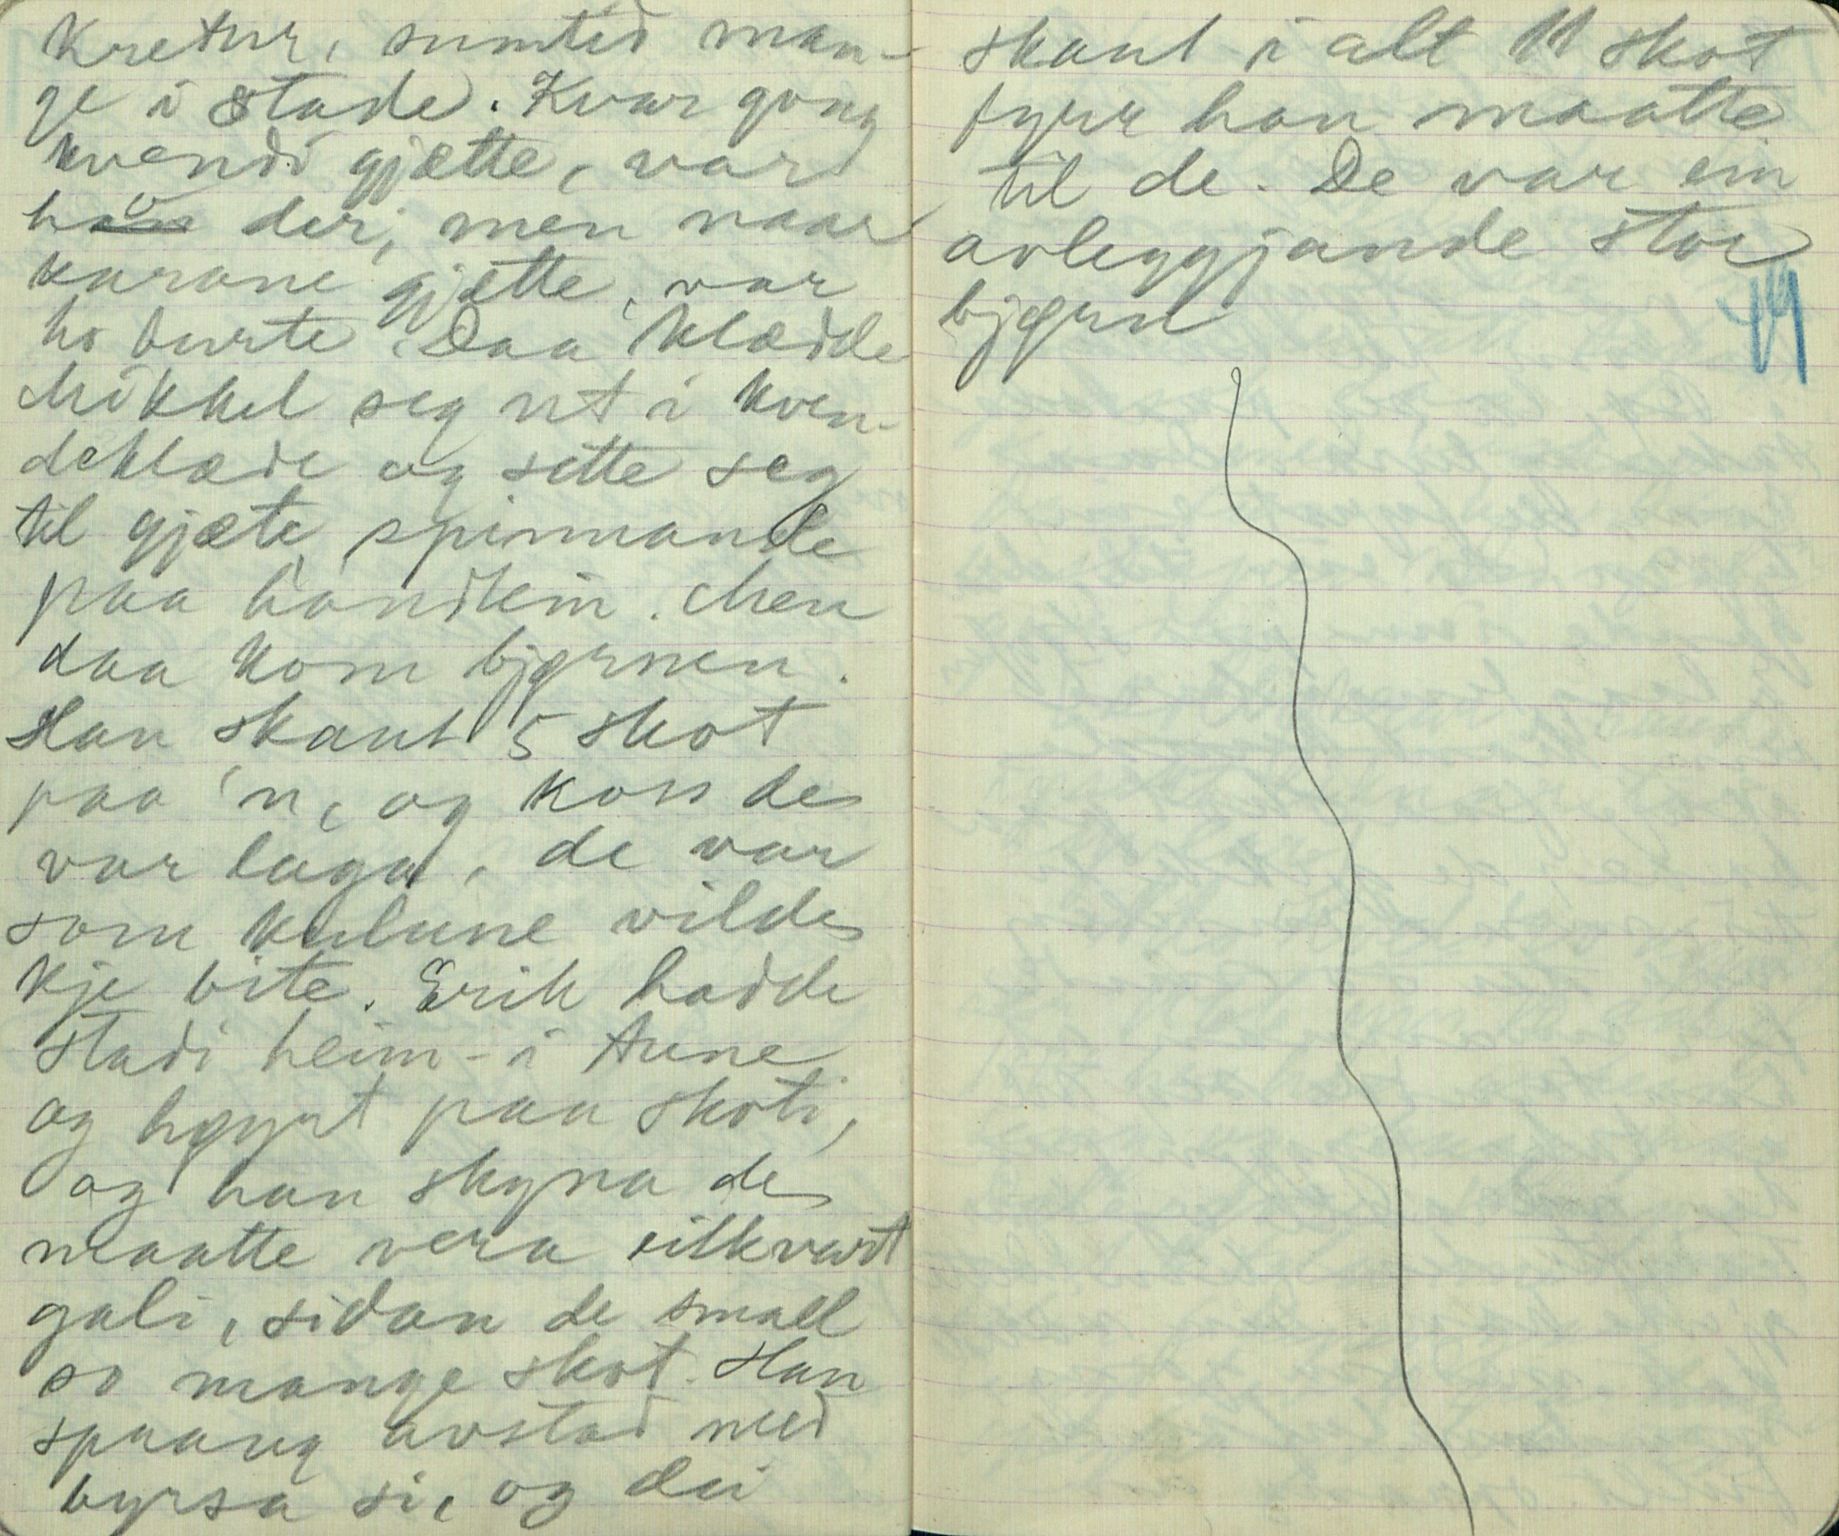 kretur, sumtid man-
ge i stade. Kvar gong
kvendi gjætte, var
ho der, men naar
karane gjætte, var
ho burte. Daa klædde
Mikkel seg ut i kven-
deklæde og sette seg
til gjæte, spinnande
paa handtein. Men
daa kom bjørnen.
Han skaut 5 skot
paa 'n, og koss de
var laga, de var
som kulune vilde
kje bite. Erik hadde
stadi heim-i Aune
og høyrt paa skoti,
og han skyna de
maatte vera eitkvart
gali, sidan de small
so mange skot. Han
sprang avstad med
byrsa si, og dei
skaut i alt 11 skot
fyrr han maatte
til de. De var ein
avleggjande stor
bjørn